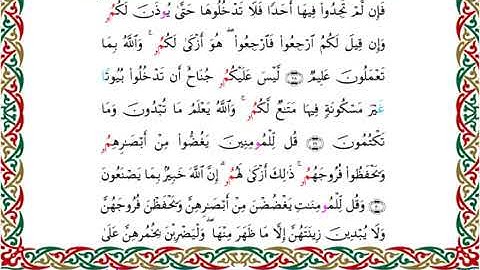 فَإِن لَّمۡ تَجِدُواْ فِيهَآ أَحَدٗا فَلَا تَدۡخُلُوهَا حَتَّىٰ يُوذَنَ لَكُمُۥۖ
وَإِن قِيلَ لَكُمُ ٱرۡجِعُواْ فَٱرۡجِعُواْۖ هُوَ أَزۡكَىٰ لَكُمُۥۚ وَٱللَّهُ بِمَا
تَعۡمَلُونَ عَلِيمٞ ۝٢٨ لَّيۡسَ عَلَيۡكُمُۥ جُنَاحٌ أَن تَدۡخُلُواْ بُيُوتًا
غَيۡرَ مَسۡكُونَةٖ فِيهَا مَتَٰعٞ لَّكُمُۥۚ وَٱللَّهُ يَعۡلَمُ مَا تُبۡدُونَ وَمَا
تَكۡتُمُونَ ۝٢٩ قُل لِّلۡمُومِنِينَ يَغُضُّواْ مِنۡ أَبۡصَٰرِهِمُۥ
وَيَحۡفَظُواْ فُرُوجَهُمُۥۚ ذَٰلِكَ أَزۡكَىٰ لَهُمُۥۚ إِنَّ ٱللَّهَ خَبِيرُۢ بِمَا يَصۡنَعُونَ
۝٣٠ وَقُل لِّلۡمُومِنَٰتِ يَغۡضُضۡنَ مِنۡ أَبۡصَٰرِهِنَّ وَيَحۡفَظۡنَ فُرُوجَهُنَّ
وَلَا يُبۡدِينَ زِينَتَهُنَّ إِلَّا مَا ظَهَرَ مِنۡهَاۖ وَلۡيَضۡرِبۡنَ بِخُمُرِهِنَّ عَلَىٰ